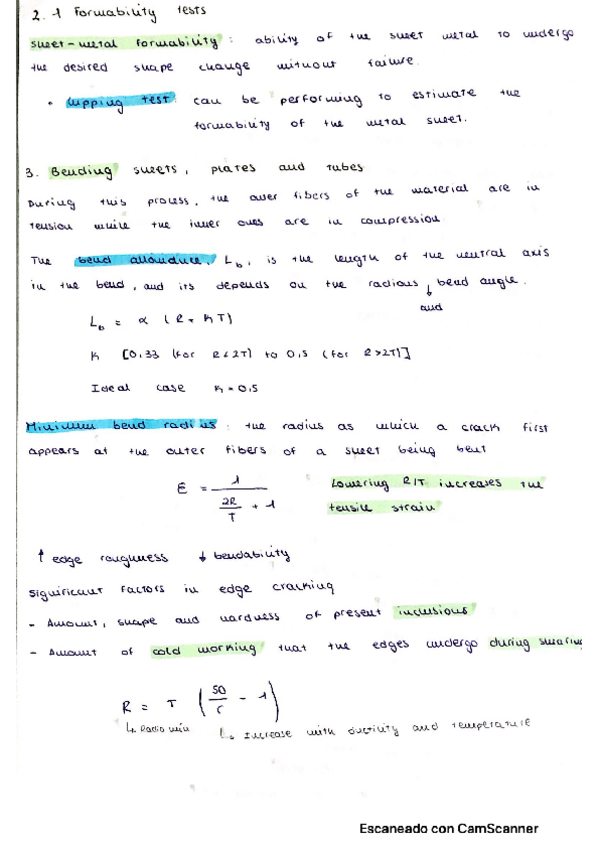 2.1 Formability tests
Sheet-metal formability: ability of the sheet metal to undergo
the desired shape change without failure.
• Cupping test: can be performing to estimate the
formability of the metal sheet.
3. Bending sheets, plates and tubes
During this process, the outer fibers of the material are in
tension while the inner ones are in compression
The bend allowance, Lb, is the length of the neutral axis
in the bend, and its depends on the radious ↓ bend angle.
and
Lb = α (R + KT)
K [0,33 (for R<2T) to 0,5 (for R>2T)]
Ideal case K=0,5
Minimum bend radius: the radius as which a crack first
appears at the outer fibers of a sheet being bent
E = 1 / (2R/T + 1) Lowering R/T increases the
tensile strain
↑ edge roughness ↓ bendability
Significant factors in edge cracking
- Amount, shape and hardness of present inclusions
- Amount of cold working that the edges undergo during shearing
R = T (50/r - 1)
↳ Radio min ↳ Increase with ductility and temperature
Escaneado con CamScanner